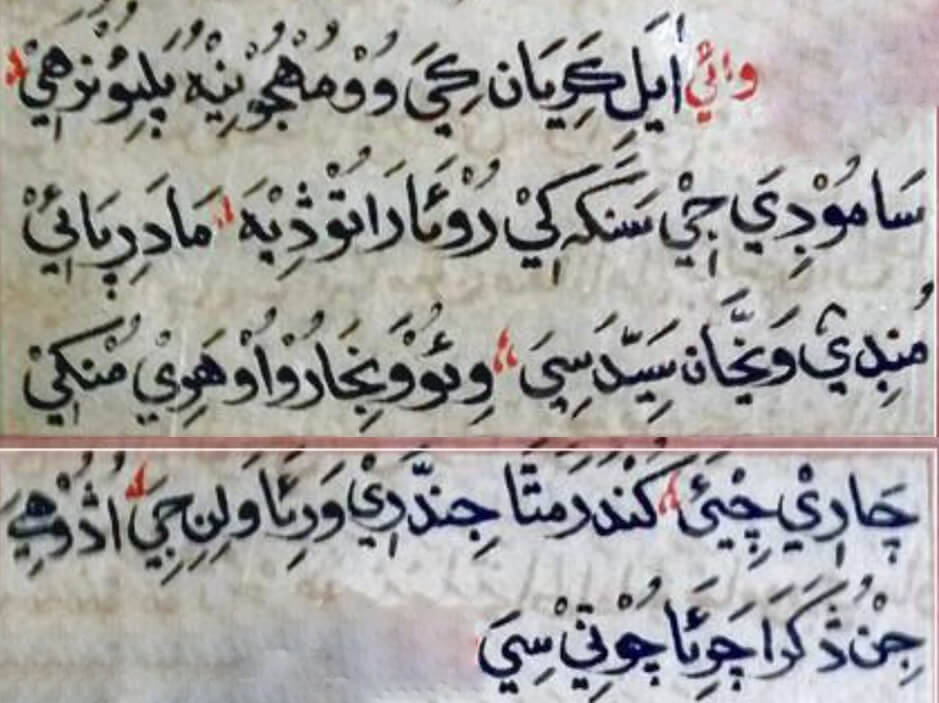 وائِي اَيَلِ ڪَرِيَان ڪِيَ وُوْ مُهجُوْ نِيْهُ پَلِيُوْ نَرَهِيْ
سَامُوْدِي جِيْ سَنگهِ ڪِيْ رُوْئَارَاتُوْ ڎِيْهَ مَادَرِ پَائِيْ
مُنِدِيْ وَڃَّان سَيِّدَ سِيَ وِئُوْ وَڃَارُوْ اُوْهَوِيْ مُنْکِيْ
چَارِيْ چِيْئَ ڪَنْدَرَ مَتَّا جِنْدَّرِيْ وَرِئَا وَلِنِ جِيَ اُڎُوْهِيْ
جِنُ ڎَکَرَا جَوِئَا جُوْتِيْ سِيَ